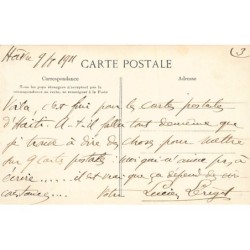 Haïti 9/5 1911
3
CARTE POSTALE
Correspondance
Adresse
Tous les pays étrangers n'acceptent pas la
correspondance au recto, se renseigner à la Poste
Voilà, c'est fini pour les cartes postales
d'Haïti. A-t-il fallu tout de même que
je trouve à dire des choses pour mettre
sur 9 cartes postales; moi qui n'aime pas à
écrire.... il est vrai que ça dépend des cir-
constances..... Votre Lucien